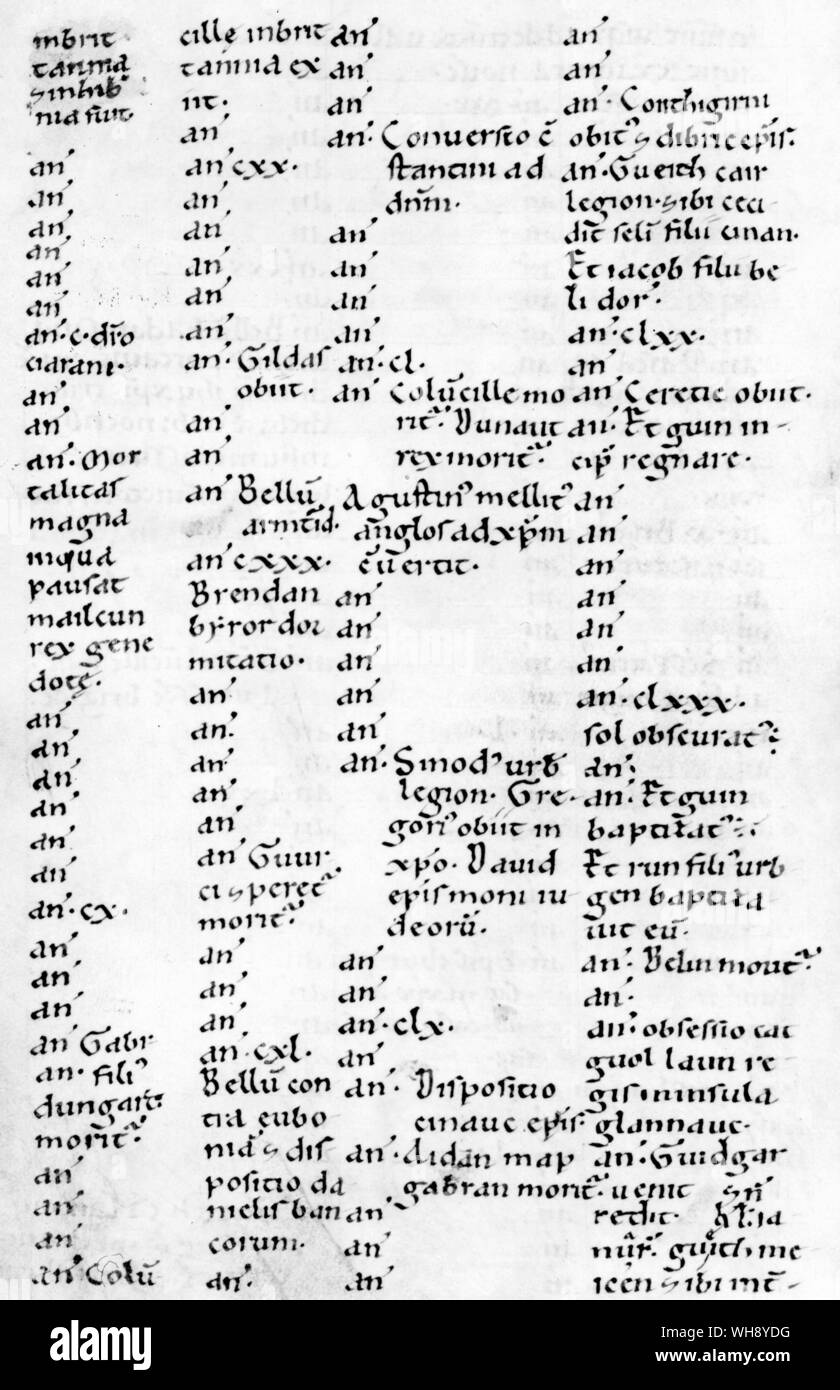 inbrit·
tannia
⁊ in hib̄
nia fuit·
an'
an'
an'
an'
an'
an'
an'· c· dīo
ciarani·
an'
an'
an'· Mor
talitas
magna
inqua
pausat
mailcun
rex gene
dotę·
an'
an'
an'
an'
an'
an'
an'· cx·
an'
an'
an'
an' Gabr
an'· filiꝰ
dungart'
morit'·
an'
an'
an'
an' Colū
cille inbrit
tannia ex
iit·
an'
an' cxx·
an'
an'
an'
an'
an'
an'· Gildas
obiit·
an'
an'
an' Bellū
armtid·
an' cxxx·
Brendan
byror dor
mitatio·
an'
an'·
an'
an'
an'
an' Guur
ci ⁊ peret'
morit'·
an'
an'
an'
an'· cxl·
Bellū con
tra eubo
niā ⁊ dis
positio da
nielis ban
corum·
an'·
an'
an'
an'
an'· Conversio c̄
stantini ad
dn̄m·
an'
an'
an'
an'
an'· cl·
an' Colūcille mo
rit'· Dunaut
rex morit'·
Agustinꝰ mellitꝰ
anglos ad xp̄m
c̄uertit·
an'
an'
an'
an'
an'
an'· Sinodꝰ urb
legion· Gre
gorꝰ obiit in
xp̄o· David
epis' moni iu
deorū·
an'
an'
an'· clx·
an'
an'· Dispositio
cinauc epis'
an'· Aidan map
gabran morit'·
an'
an'
an'
an'
an'
an'· Conthigirni
obitꝰ ⁊ dibric epis'·
an'· Gueith cair
legion· ⁊ ibi ceci
dit seli filii cinan·
Et iacob filii be
li dor'·
an'· clxx·
an'
an' Ceretic obiit·
an'· Etguin in
cip̄ regnare·
an'
an'
an'
an'
an'
an'
an'· clxxx·
sol obscurat'·
an'
an'· Etguin
baptizat'·
Et run filiꝰ urb
gen baptiza
uit eū·
an'· Belin morit'·
an'·
an'· obsessio cat
guol laun re
gis in insula
glannauc·
an'· Guidgar
uenit ⁊ n̄
redit· kl ia
nur̄· gueith me
icen ⁊ ibi int̄
alamy
Image ID: WH8YDG
www.alamy.com